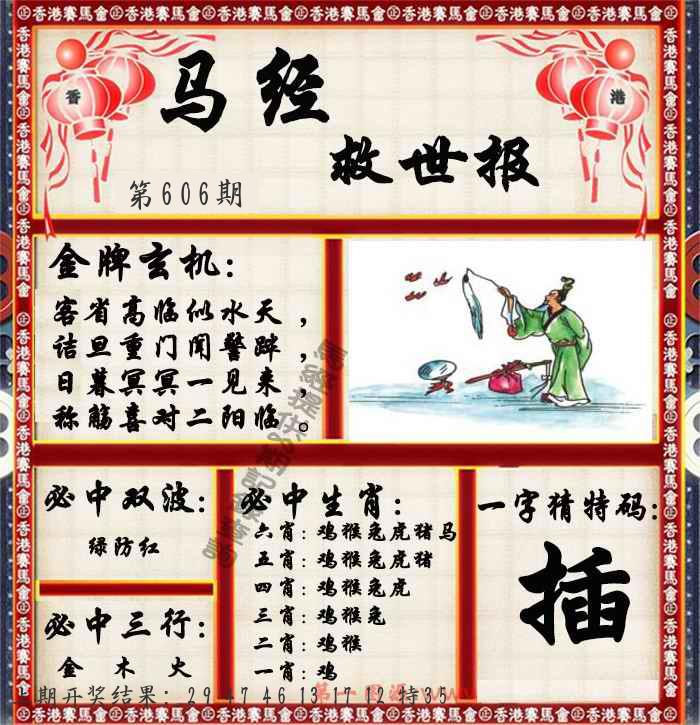 马经
救世报
第606期
香
港
金牌玄机：
客省高临似水天，
诘旦重门闻警跸，
日暮冥冥一见来，
称觞喜对二阳临。
必中双波：
绿防红
必中三行：
金 木 火
必中生肖：
六肖：鸡猴兔虎猪马
五肖：鸡猴兔虎猪
四肖：鸡猴兔虎
三肖：鸡猴兔
二肖：鸡猴
一肖：鸡
一字猜特码：
插
期开奖结果：29 47 46 13 17 12 特35
香港賽馬會